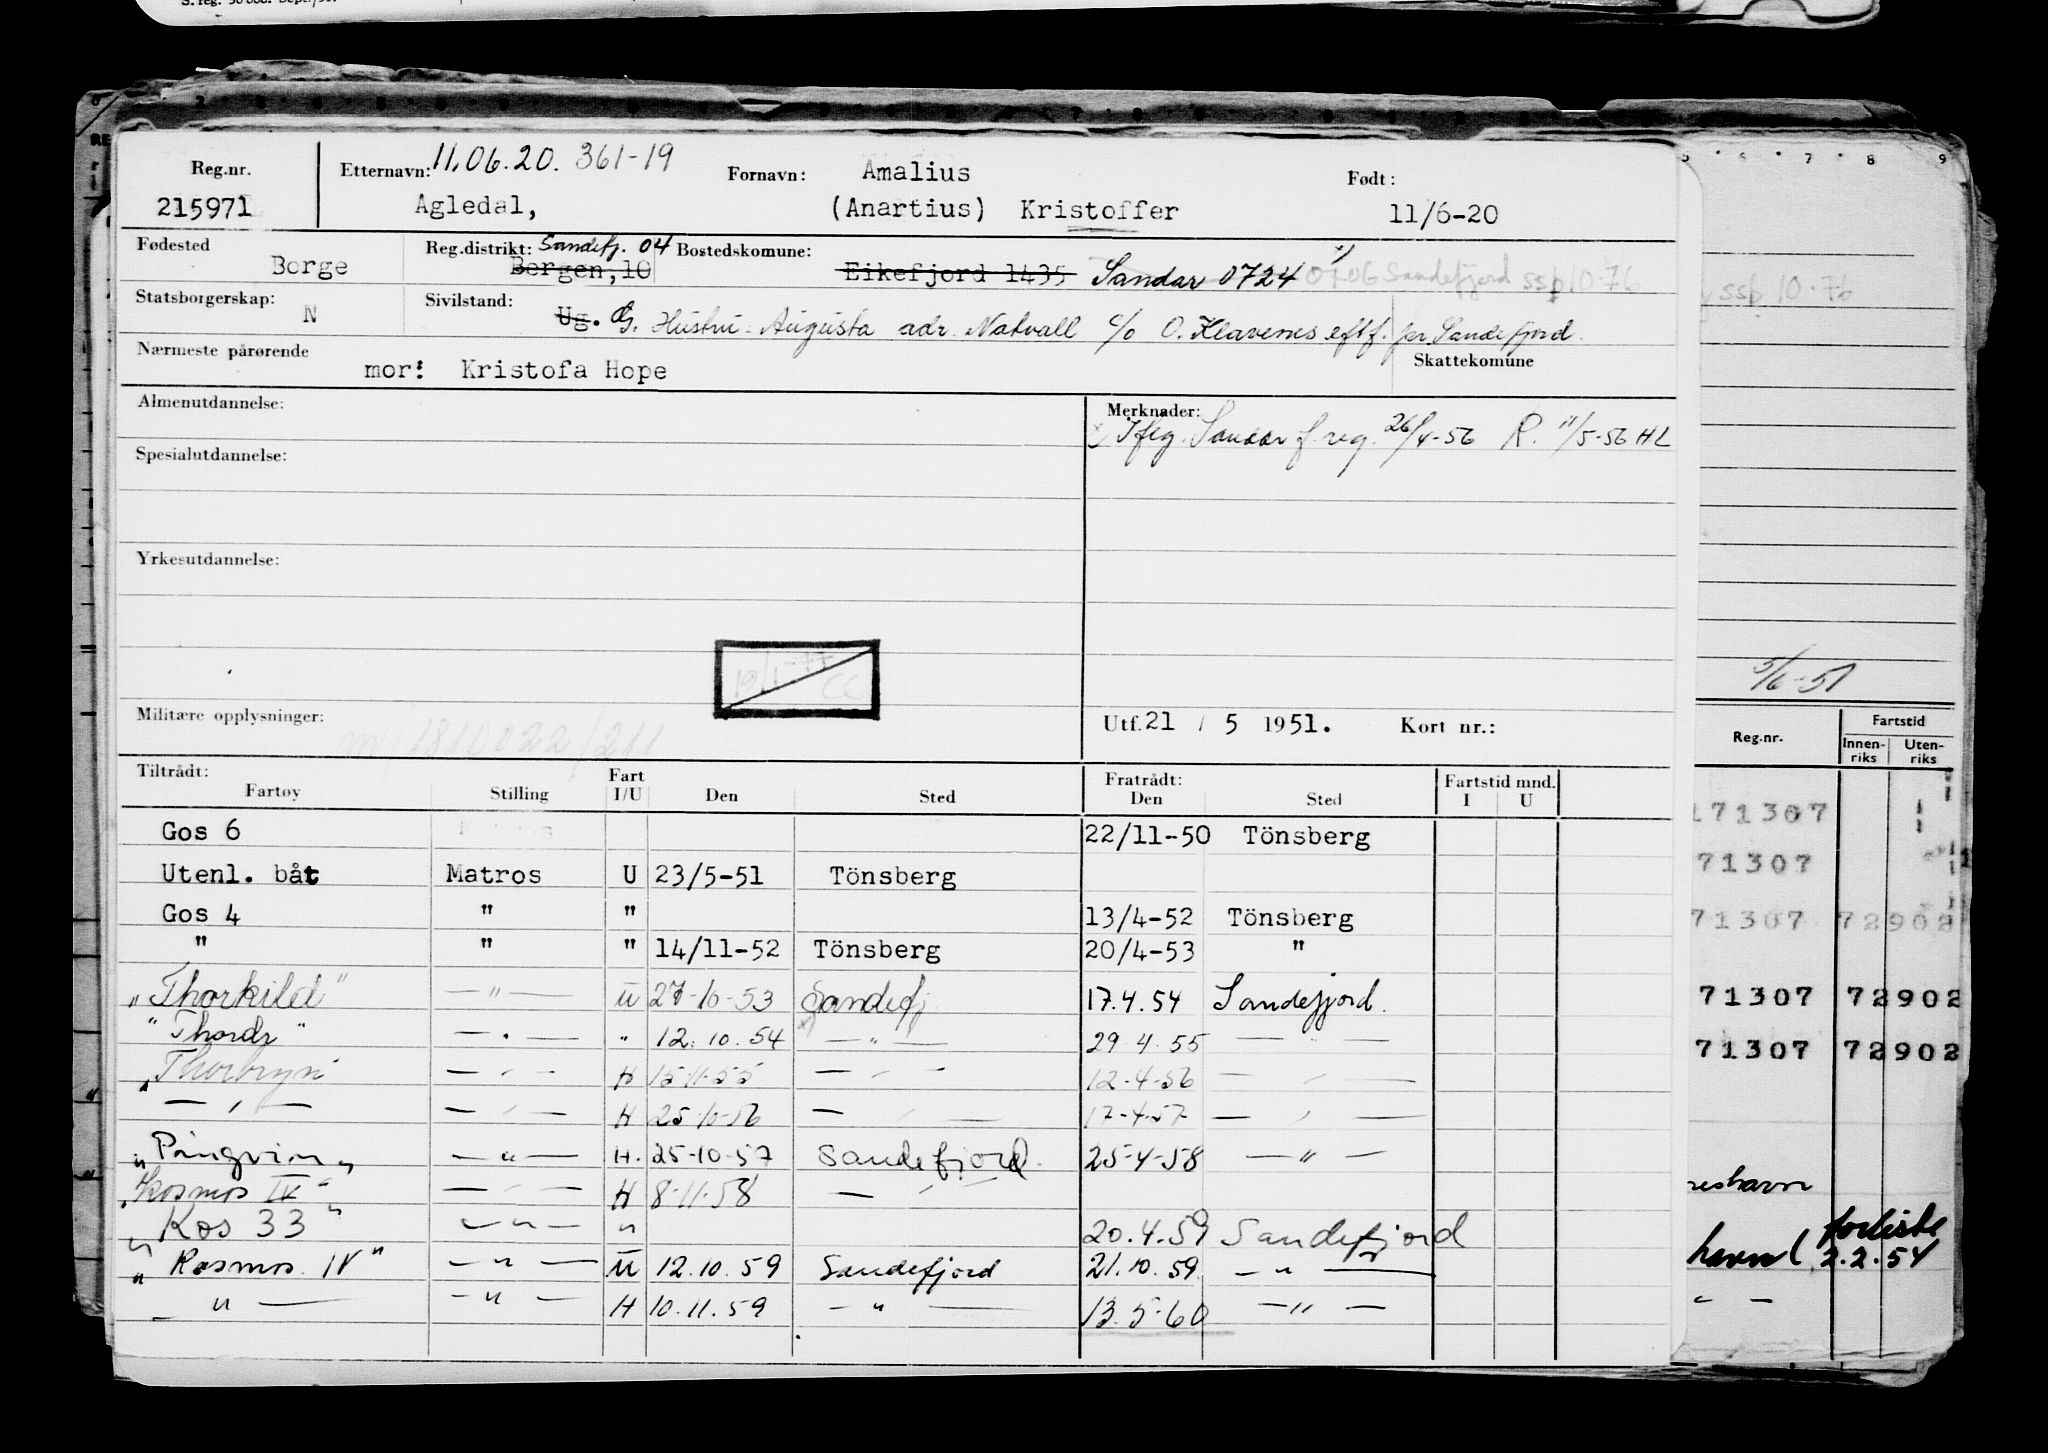 S. reg. 50 000. Sept./51.
Reg.nr. Etternavn: 11.06.20. 361-19 Fornavn: Amalius Født:
215971 Agledal, (Anartius) Kristoffer 11/6-20
Fødested Reg.distrikt: Sandefj. 04 Bostedskomune: x)
Borge Bergen, 10 Eikefjord 1435 Sandar 0724 0706 Sandefjord ssb 10.76
ssb 10.76
Statsborgerskap: Sivilstand:
N Ug. G. Hustru: Augusta adr. Natvall c/o O. Klavenes eftf. pr. Sandefjord.
Nærmeste pårørende Skattekomune
mor: Kristofa Hope
Almenutdannelse: Merknader:
x) Iflg. Sandar f.reg. 26/4-56 R. 11/5-56 HL
Spesialutdannelse:
Yrkesutdannelse:
19/1-77 CC
5/6-51
Militære opplysninger: Utf. 21 / 5 1951. Kort nr.:
m/1810022/211
Tiltrådt: Fart Fratrådt: Fartstid mnd.
Fartøy Stilling I/U Den Sted Den Sted I U
Reg.nr. Fartstid
Innen-riks Uten-riks
Gos 6 22/11-50 Tönsberg
171307
Utenl. båt Matros U 23/5-51 Tönsberg
71307
Gos 4 " " 13/4-52 Tönsberg
71307 72902
" " " 14/11-52 Tönsberg 20/4-53 "
"Thorkild" — " — U 27-10-53 Sandefj 17.4.54 Sandefjord.
71307 72902
"Thordr" — " — " 12.10.54 — " — 29.4.55 — " —
71307 72902
"Thorbryn — " — H 15.11.55 — " — 12-4-56 — " —
— " — — " — H 25.10.56 — " — 17-4-57 — " —
"Pingvin" — " — H. 25-10-57 Sandefjord. 25-4-58 — " —
"Kosmos IV" — " — H 8.11.58 — " —
"Kos 33" — " — " 20.4.59 Sandefjord
forliste
"Kosmos IV" — " — U 12.10.59 Sandefjord 21.10.59. — " —
havn( 2.2.54
— " — — " — H 10.11.59 — " — 13.5-60 — " —